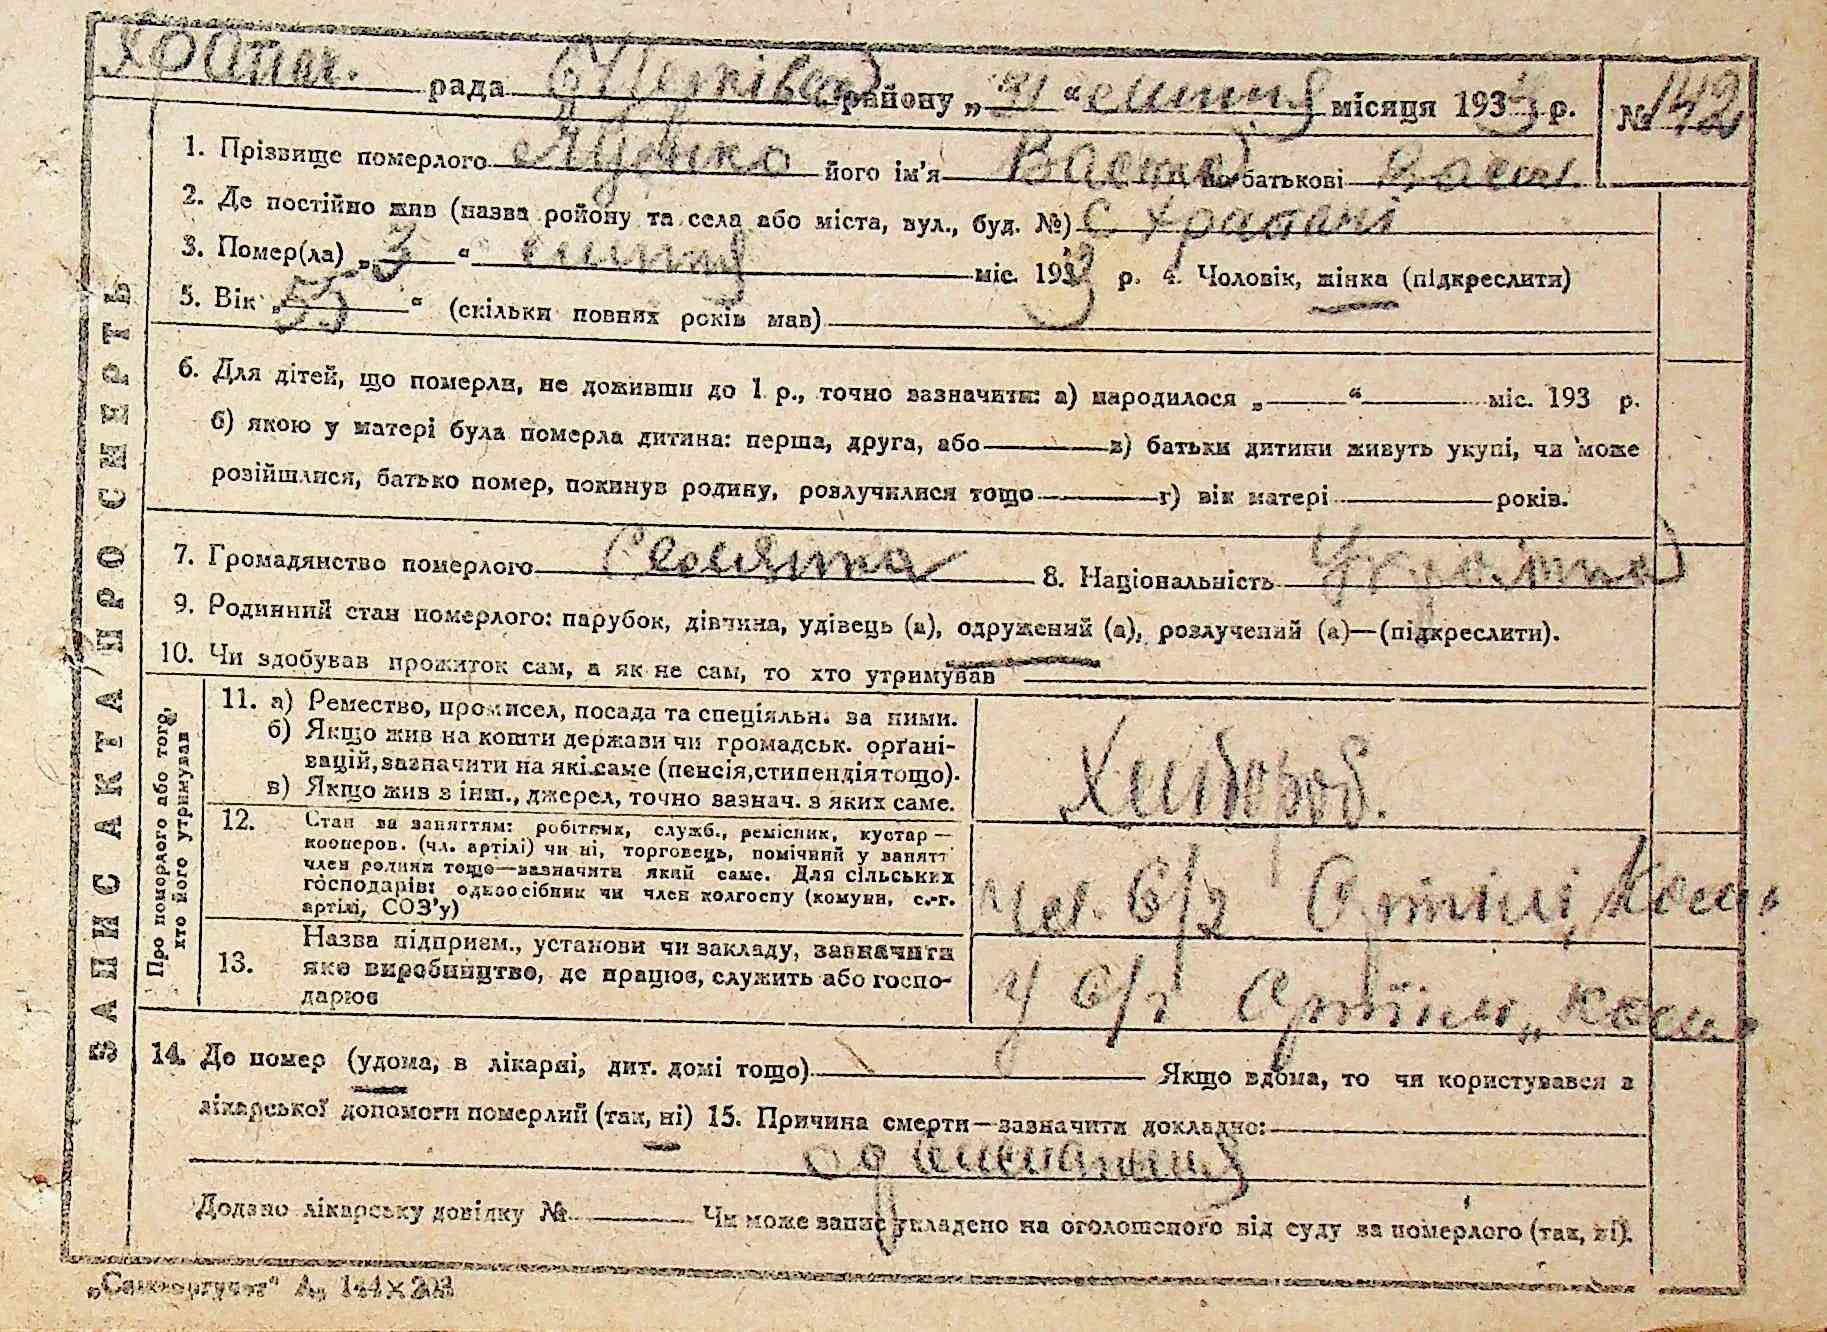 Храпач. рада Петрівськ району „31“ липня місяця 1933 р. № 142
1. Прізвище померлого його ім'я по батькові
2. Де постійно жив (назва ройону та села або міста, вул., буд. №) с. Храпачі
3. Помер(ла) „3“ липня міс. 1933 р. 4. Чоловік, жінка (підкреслити)
5. Вік „55“ (скільки повних років мав)
6. Для дітей, що померли, не доживши до 1 р., точно зазначити: а) народилося „ “ міс. 193 р.
б) якою у матері була померла дитина: перша, друга, або в) батьки дитини живуть укупі, чи може
розійшлися, батько помер, покинув родину, розлучилися тощо г) вік матері років.
7. Громадянство померлого Селянка 8. Національність Українка
9. Родинний стан померлого: парубок, дівчина, удівець (а), одружений (а), розлучений (а)—(підкреслити).
10. Чи здобував прожиток сам, а як не сам, то хто утримував
ЗАПИС АКТА ПРО СМЕРТЬ
Про померлого або того,
хто його утримував
11. а) Ремество, промисел, посада та спеціяльн. за ними.
б) Якщо жив на кошти держави чи громадськ. орґані-
зацій, зазначити на які саме (пенсія, стипендія тощо).
в) Якщо жив з інш., джерел, точно зазнач. з яких саме.
Хлібороб.
12. Стан за заняттям: робітник, служб., ремісник, кустар —
кооперов. (чл. артілі) чи ні, торговець, помічний у занятт
член родини тощо—зазначити який саме. Для сільських
господарів: одноосібник чи член колгоспу (комуни, с.-г.
артілі, СОЗ'у)
Чл. с/г Артілі
13. Назва підприєм., установи чи закладу, зазначити
яке виробництво, де працює, служить або госпо-
дарює
У с/г Артілі
14. Де помер (удома, в лікарні, дит. домі тощо) Якщо вдома, то чи користувався з
лікарської допомоги померлий (так, ні) 15. Причина смерти—зазначити докладно:
Додано лікарську довідку № Чи може запис укладено на оголошеного від суду за померлого (так, ні).